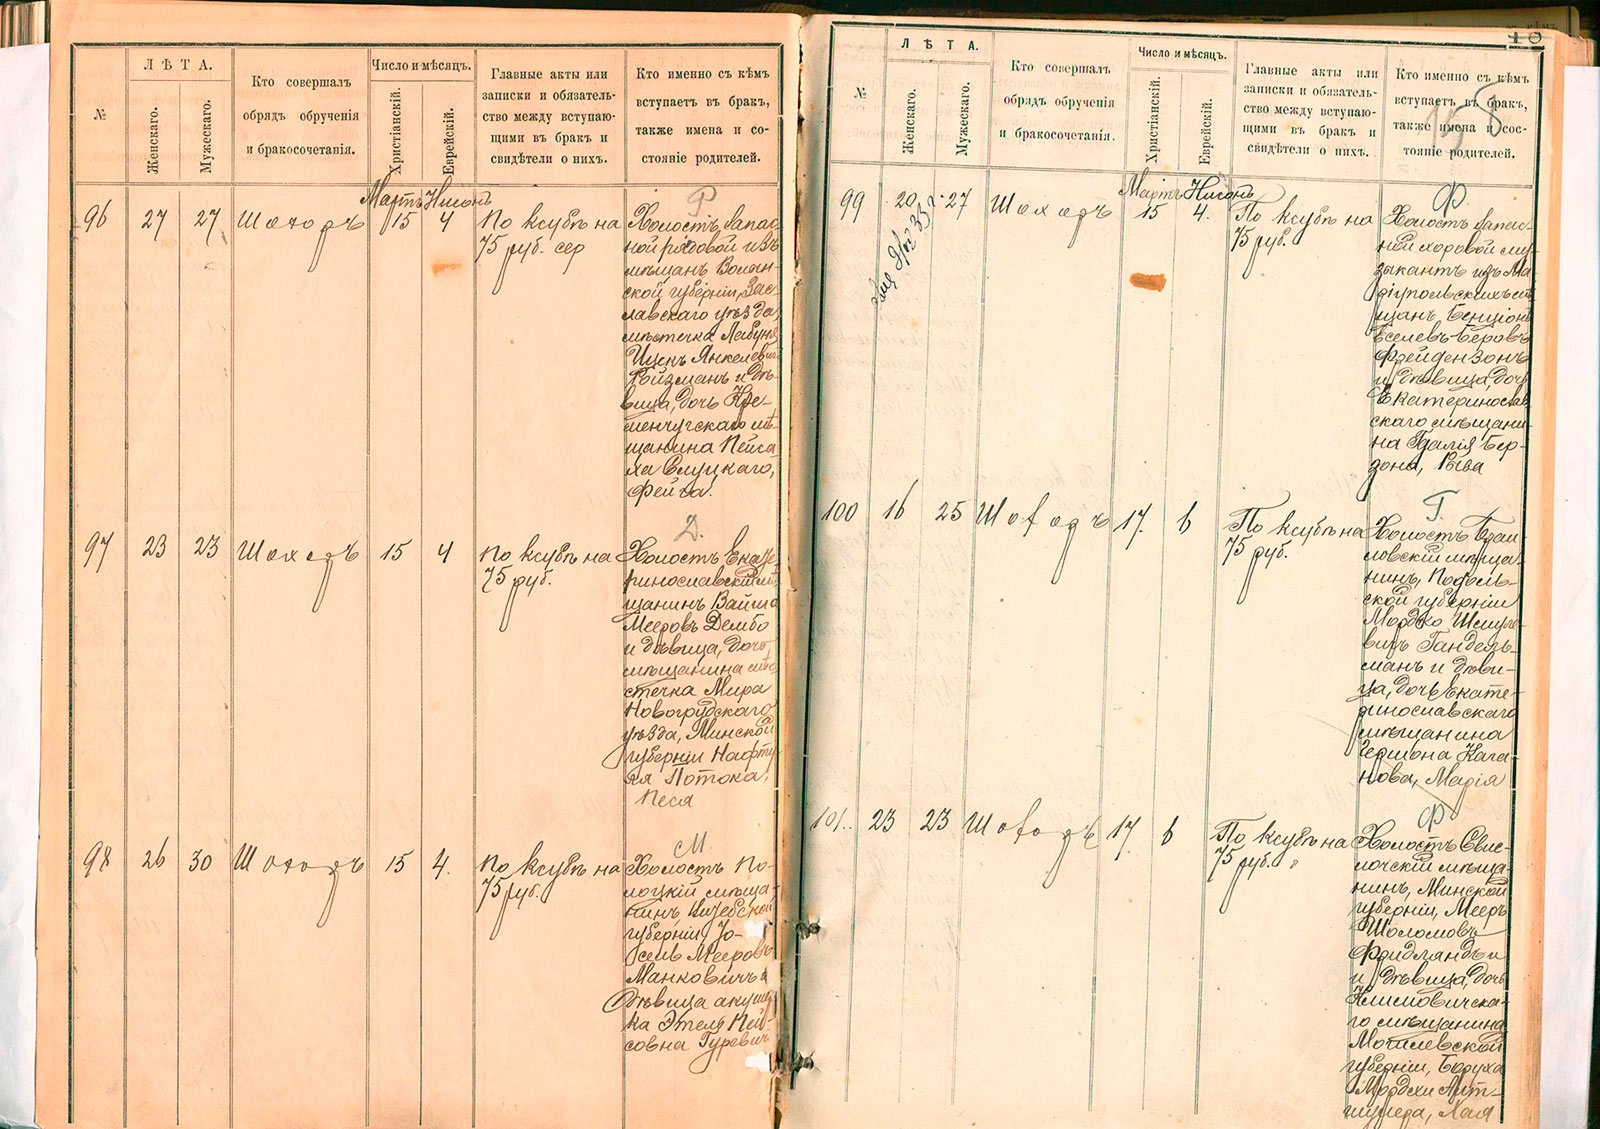 ЛѢТА.
Число и мѣсяцъ.
№
Женскаго.
Мужескаго.
Кто совершалъ
обрядъ обрученія
и бракосочетанія.
Христіанскій.
Еврейскій.
Главные акты или
записки и обязатель-
ство между вступаю-
щими въ бракъ и
свидѣтели о нихъ.
Кто именно съ кѣмъ
вступаетъ въ бракъ,
также имена и со-
стояніе родителей.
Мартъ Нисонъ
Р
96 27 27 Шоходъ 15 4
По ксубѣ на
75 руб. сер
Холостъ, запас-
ной рядовой изъ
мѣщанъ Волын-
ской губерніи, Зас-
лавскаго уѣзда
мѣстечка Лабунь
Ицекъ Янкелевъ
Ройзманъ и дѣ-
вица, дочь Кре-
менчугскаго мѣ-
щанина Пейса-
ха Слуцкаго,
Фейга.
Д.
97 23 23 Шоходъ 15 4
По ксубѣ на
75 руб.
Холостъ Екате-
ринославскій мѣ-
щанинъ
Мееровъ Дембо
и дѣвица, дочь
мѣщанина мѣ-
стечка Мира
Новогрудскаго
уѣзда, Минской
губерніи Нафту-
ля Потока,
Песя
М.
98 26 30 Шоходъ 15 4.
По ксубѣ на
75 руб.
Холостъ По-
лоцкій мѣща-
нинъ, Витебской
губерніи, Іо-
сель Мееровъ
Манковичъ и
дѣвица акушер-
ка Этель Пей-
совна Гуревичъ
18
ЛѢТА.
Число и мѣсяцъ.
№
Женскаго.
Мужескаго.
Кто совершалъ
обрядъ обрученія
и бракосочетанія.
Христіанскій.
Еврейскій.
Главные акты или
записки и обязатель-
ство между вступаю-
щими въ бракъ и
свидѣтели о нихъ.
Кто именно съ кѣмъ
вступаетъ въ бракъ,
также имена и сос-
тояніе родителей.
Мартъ Нисонъ
Ф.
99 20 27 Шоходъ 15 4.
По ксубѣ на
75 руб.
Холостъ запас-
ный хоровой му-
зыкантъ изъ Ма-
ріупольскихъ мѣ-
щанъ Бенціонъ
Еселевъ-Беровъ
Фрейдензонъ
и дѣвица, дочь
Екатеринослав-
скаго мѣщани-
на Гдалія Бер-
дона, Рыва
Г.
100 16 25 Шоходъ 17. 6
По ксубѣ на
75 руб.
Холостъ Браи-
ловскій мѣща-
нинъ, Подоль-
ской губерніи
Мордко Шмуле-
вичъ Гандель-
манъ и дѣви-
ца, дочь Екате-
ринославскаго
мѣщанина
Гершона Кага-
нова, Марія
Ф
101. 23 23 Шоходъ 17. 6
По ксубѣ на
75 руб.
Холостъ Свис-
лочскій мѣща-
нинъ, Минской
губерніи, Мееръ
Шоломовъ
Фридландъ и
и дѣвица, дочь
Климовичска-
го мѣщанина
Могилевской
губерніи, Боруха
Мордхи Альт-
шулера, Хая